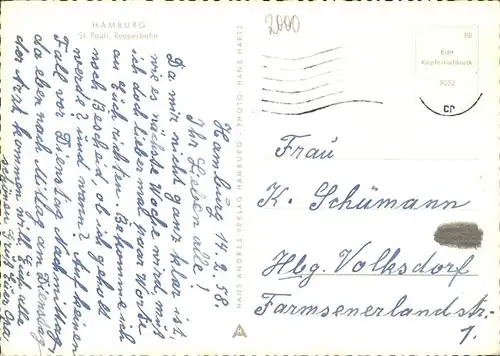 HAMBURG
St. Pauli, Reeperbahn
Hamburg 14.2.58.
Ihr Lieben alle!
Da mir nicht ganz klar ist,
wie es nächste Woche wird, muß
ich doch lieber mal paar Worte
an Euch richten. Bekomme ich
noch Bescheid, ob ich geholt
werde? und wann? Auf keinen
Fall vor Dienstag Nachmittag,
da eben nach Mittag am Dienstag
der Arzt kommen will. Euch alle
schönen Gruß Eure
HANS ANDRES VERLAG HAMBURG · PHOTO: HANS HARTZ
2000
BB
Echt
Kupfertiefdruck
9052
Frau
K. Schümann
Hbg. Volksdorf
Farmsenerlandstr.
1.